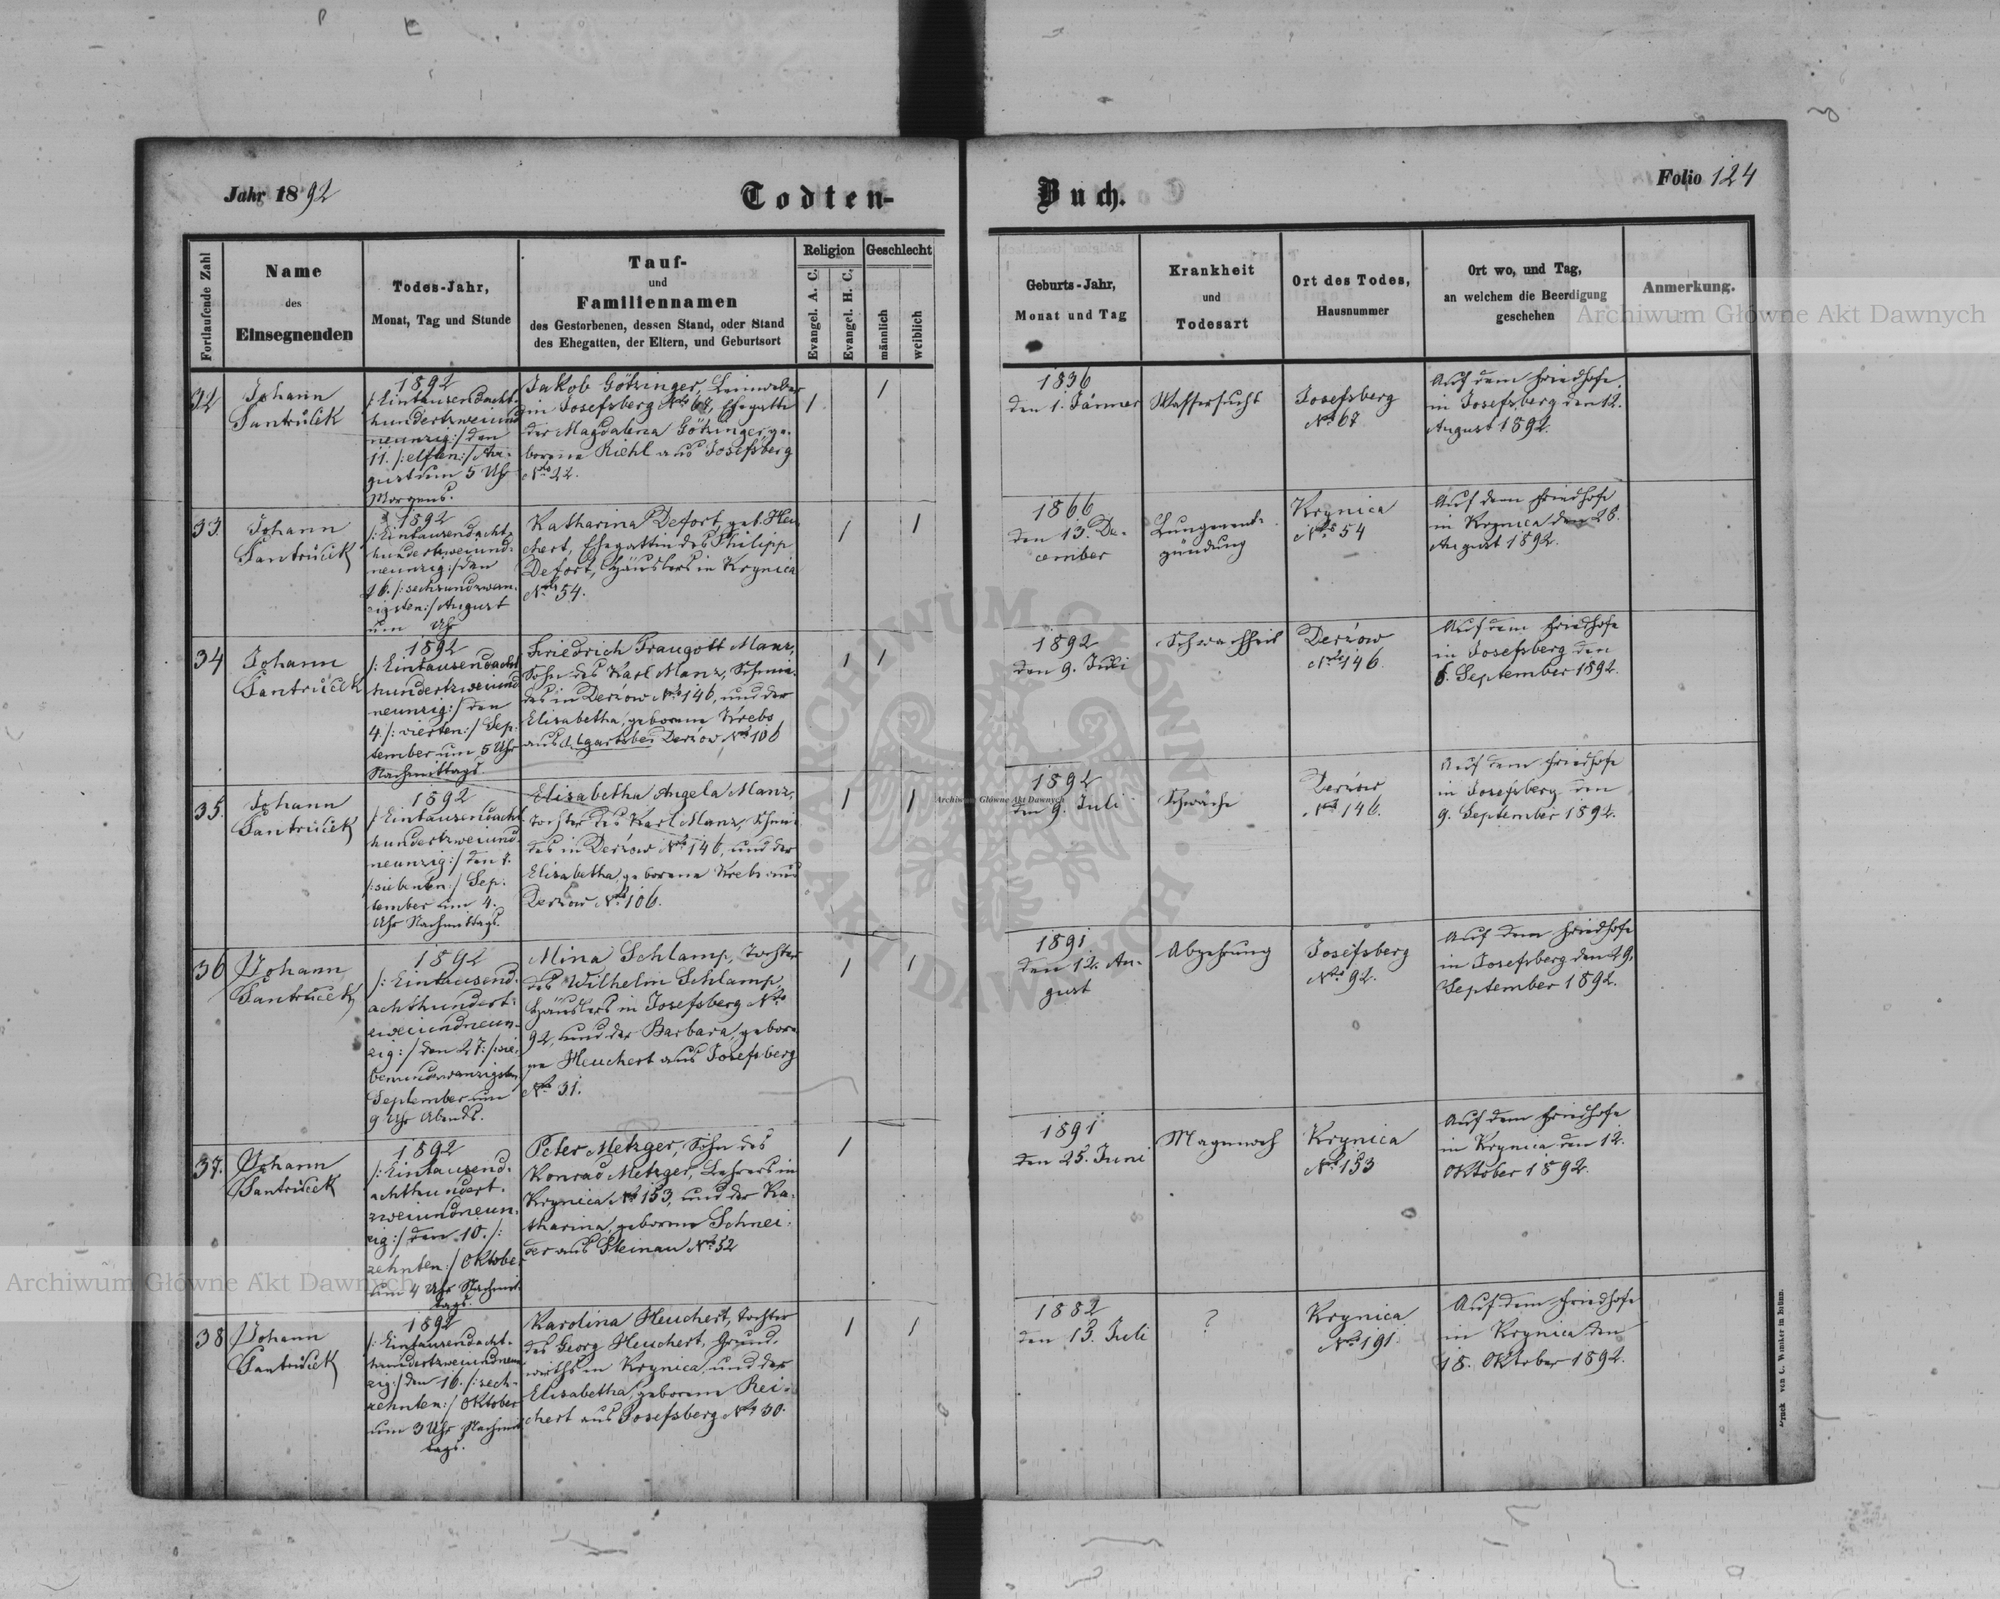 Jahr 1892
Todten-
Buch.
Folio 124
Fortlaufende Zahl
Name
des
Einsegnenden
Todes-Jahr,
Monat, Tag und Stunde
Tauf-
und
Familiennamen
des Gestorbenen, dessen Stand, oder Stand
des Ehegatten, der Eltern, und Geburtsort
Religion
Evangel. A. C.
Evangel. H. C.
Geschlecht
männlich
weiblich
Geburts-Jahr,
Monat und Tag
Krankheit
und
Todesart
Ort des Todes,
Hausnummer
Ort wo, und Tag,
an welchem die Beerdigung
geschehen
Anmerkung.
32
Johann
Santrůček
1892
/: Eintausendacht-
hundertzweiund
neunzig :/ den
11. /: elften :/ Au-
gust um 5 Uhr
Morgens.
Jakob Götzinger, Leinweber
in Josefsberg No 67, Ehegatte
der Magdalena Götzinger, ge-
borene Riehl aus Josefsberg
No 22.
/
/
1836
den 1. Jänner
Wassersucht
Josefsberg
No 67
Auf dem Friedhofe
in Josefsberg den 12.
August 1892.
33.
Johann
Santrůček
1892
/: Eintausendacht-
hundertzweiund-
neunzig :/ den
26. /: sechsundzwan-
zigsten :/ August
um Uhr
Katharina Defort, geb. Heu
chert, Ehegattin des Philipp
Defort, Häuslers in Krynica
No 54.
/
/
1866
den 13. De-
cember
Lungenent-
zündung
Krynica
No 54
Auf dem Friedhofe
in Krynica den 28.
August 1892.
34
Johann
Santrůček
1892
/: Eintausendacht
hundertzweiund
neunzig :/ den
4. /: vierten :/ Sep-
tember um 5 Uhr
Nachmittags
Friedrich Traugott Manz,
Sohn des Karl Manz, Schmie-
des in Derzow No 146, und der
Elisabetha, geborene Krebs
aus Ugartsberg Derzow No 106
/
/
1892
den 9. Juli
Schwachheit
Derzow
No 146.
Auf dem Friedhofe
in Josefsberg den
6. September 1892.
35.
Johann
Santrůček
1892
/: Eintausendacht
hundertzweiund-
neunzig :/ den 7.
/: siebenten :/ Sep-
tember um 4.
Uhr Nachmittags.
Elisabetha Angela Manz,
Tochter des Karl Manz, Schmie-
des in Derzow No 146, und der
Elisabetha, geborene Krebs aus
Derzow No 106.
/
/
1892
den 9. Juli
Schwäche
Derzow
No 146.
Auf dem Friedhofe
in Josefsberg den
9. September 1892.
36
Johann
Santrůček
1892
/: Eintausend-
achthundert-
zweiundneun-
zig :/ den 27. /: sie-
benundzwanzigsten
September um
9 Uhr Abends.
Mina Schlamp, Tochter
des Wilhelm Schlamp,
Häuslers in Josefsberg No
92, und der Barbara, gebore-
ne Heuchert aus Josefsberg
No 31.
/
/
1891
den 12. Au-
gust
Abzehrung
Josefsberg
No 92.
Auf dem Friedhofe
in Josefsberg den 29.
September 1892.
37.
Johann
Santrůček
1892
/: Eintausend-
achthundert-
zweiundneun-
zig :/ den 10. /:
zehnten :/ Oktober
um 4 Uhr Nachmit-
tags.
Peter Metzger, Sohn des
Konrad Metzger, Lehrers in
Krynica No 153, und der Ka-
tharina, geborene Schnei-
der aus Steinau No 52
/
1891
den 25. Juni
Krynica
No 153
Auf dem Friedhofe
in Krynica den 12.
Oktober 1892.
38
Johann
Santrůček
1892
/: Eintausendacht-
hundertzweiundneun
zig :/ den 16. /: sech-
zehnten :/ Oktober
um 3 Uhr Nachmit
tags.
Karolina Heuchert, Tochter
des Georg Heuchert, Grund-
wirths in Krynica, und der
Elisabetha, geborene Rei-
chert aus Josefsberg No 30.
/
/
1882
den 13. Juli
?
Krynica
No 191
Auf dem Friedhofe
in Krynica den
18. Oktober 1892.
Druck von C. Winiker in Brünn.
Archiwum Główne Akt Dawnych
Archiwum Główne Akt Dawnych
Archiwum Główne Akt Dawnych
ARCHIWUM GŁÓWNE
AKT DAWNYCH